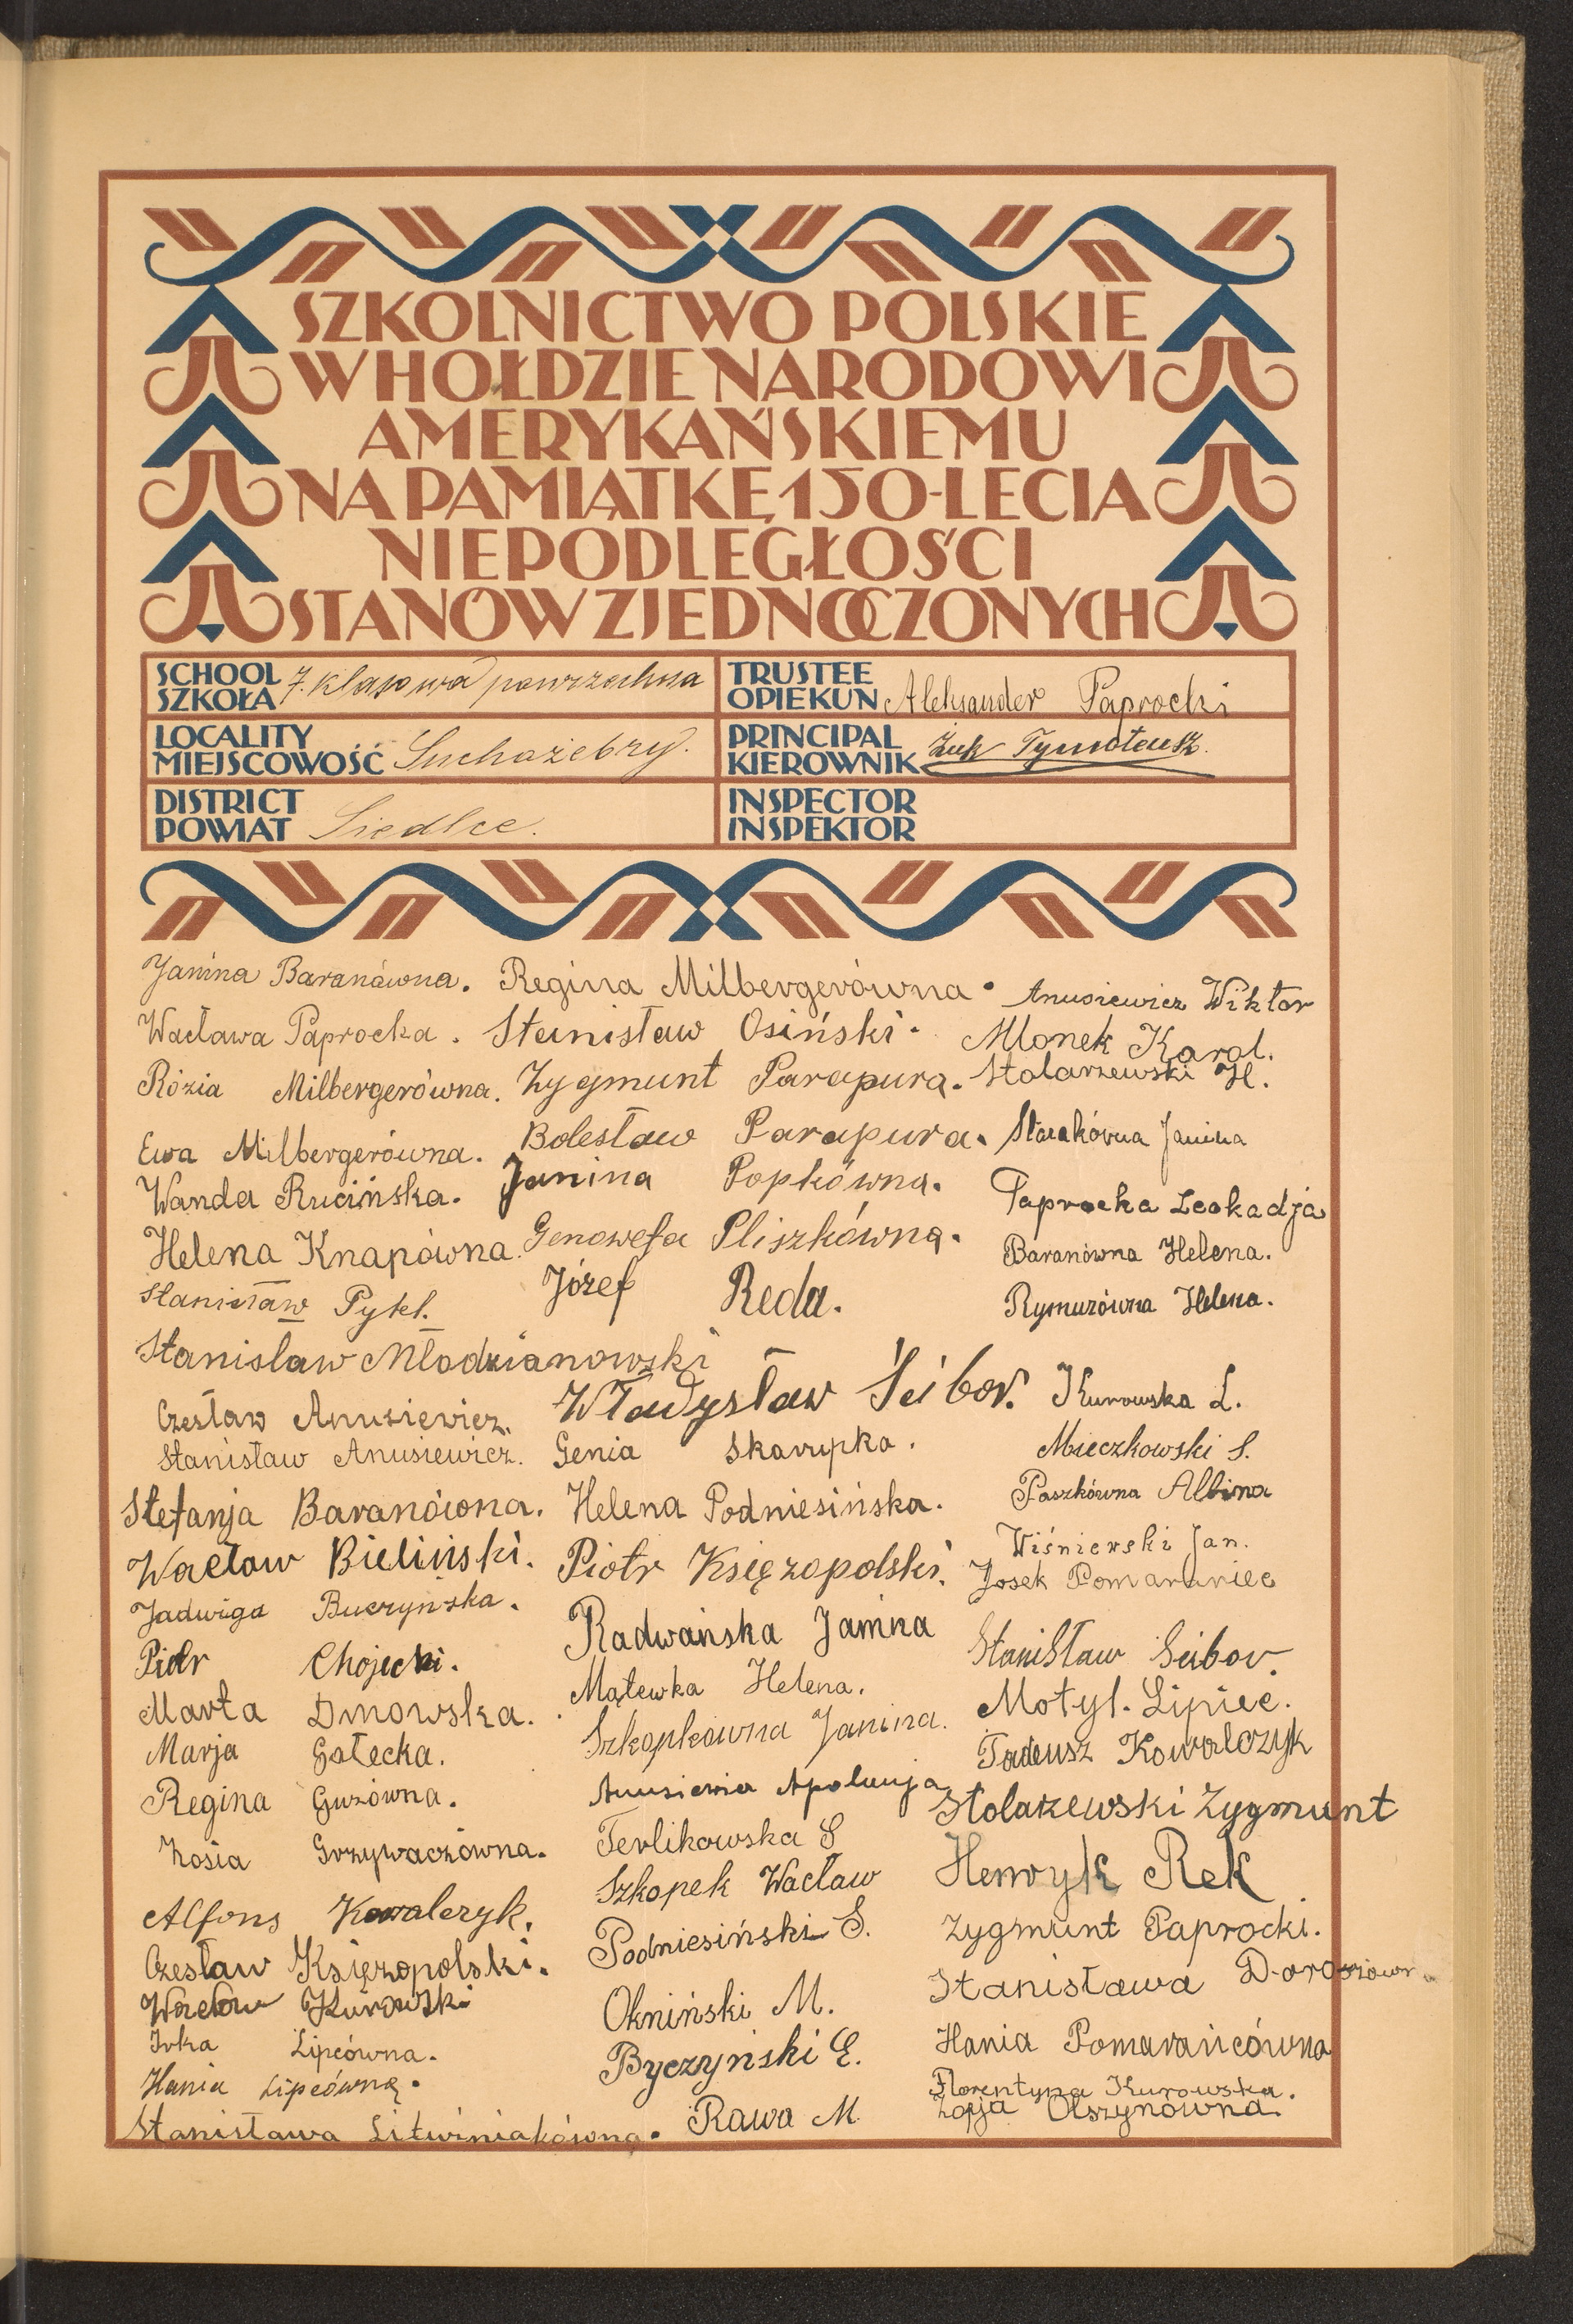 SZKOLNICTWO POLSKIE
W HOŁDZIE NARODOWI
AMERYKAŃSKIEMU
NA PAMIĄTKĘ 150-LECIA
NIEPODLEGŁOŚCI
STANÓW ZJEDNOCZONYCH
SCHOOL
SZKOŁA 7. klasowa powszechna
TRUSTEE
OPIEKUN Aleksander Paprocki
LOCALITY
MIEJSCOWOŚĆ Suchożebry.
PRINCIPAL
KIEROWNIK Żuk Tymoteusz.
DISTRICT
POWIAT Siedlce.
INSPECTOR
INSPEKTOR
Janina Baranówna.
Wacława Paprocka.
Rózia Milbergerówna.
Ewa Milbergerówna.
Wanda Rucińska.
Helena Knapówna.
Stanisław Pykl.
Stanisław Młodzianowski
Czesław Anusiewicz.
Stanisław Anusiewicz.
Stefanja Baranówna.
Wacław Bieliński.
Jadwiga Buczyńska.
Piotr Chojecki.
Marta Dmowska.
Marja Gałecka.
Regina Guzówna.
Zosia Grzywaczówna.
Alfons Kowalczyk.
Czesław Księżopolski.
Wacław Kurowski
Ivka Lipcówna.
Hania Lipcówną.
Stanisława Litwiniakówna.
Regina Milbergerówna.
Stanisław Osiński.
Zygmunt Parapura.
Bolesław Parapura.
Janina Popkówna.
Genowefa Pliszkówną.
Józef Reda.
Władysław Ścibor.
Genia Skarupka.
Helena Podniesińska.
Piotr Księżopolski.
Radwańska Janina
Mątewka Helena.
Szkopkówna Janina.
Apolonja
Terlikowska S
Szkopek Wacław
Podniesiński S.
Okniński M.
Byczyński E.
Rawa M.
Anusiewicz Wiktor
Mlonek Karol.
Stolarzewski H.
Janina
Paprocka Leokadja
Baranówna Helena.
Rymuzówna Helena.
Kurowska L.
Mieczkowski S.
Paszkówna Albina
Wiśniewski Jan.
Josek Pomaraniec
Stanisław Ścibor.
Motyl. Lipiec.
Tadeusz Kowalczyk
Stolarzewski Zygmunt
Henryk Rek
Zygmunt Paprocki.
Stanisława
Hania Pomarańcówna
Florentyna Kurowska.
Zofja Olszynówna.